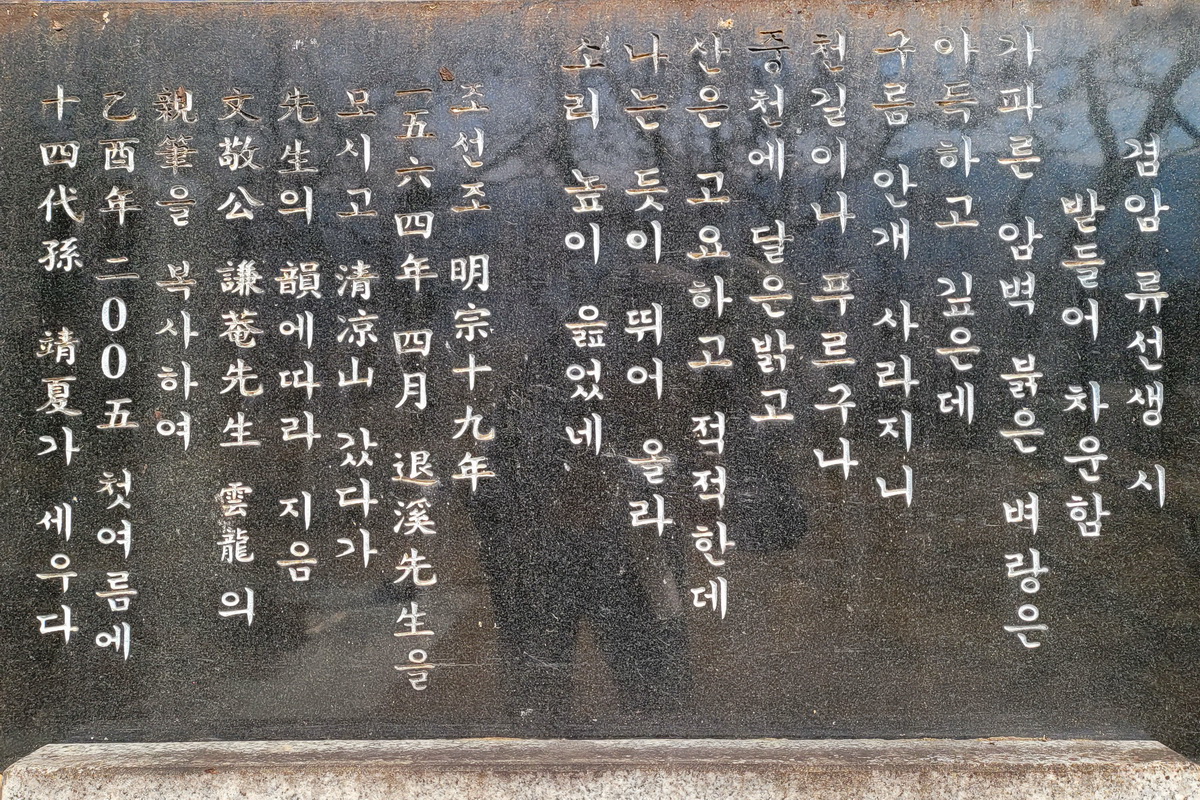 겸암 류선생 시
받들어 차운함
가파른 암벽 붉은 벼랑은
아득하고 깊은데
구름 안개 사라지니
천길이나 푸르구나
중천에 달은밝고
산은 고요하고 적적한데
나는 듯이 뛰어 올라
소리 높이 읊었네
조선조 明宗十九年
一五六四年 四月 退溪先生을
모시고 清凉山 갔다가
先生의 韻에따라 지음
文敬公 謙菴先生 雲龍의
親筆을 복사하여
乙酉年 二００五 첫여름에
十四代孫 靖夏가 세우다